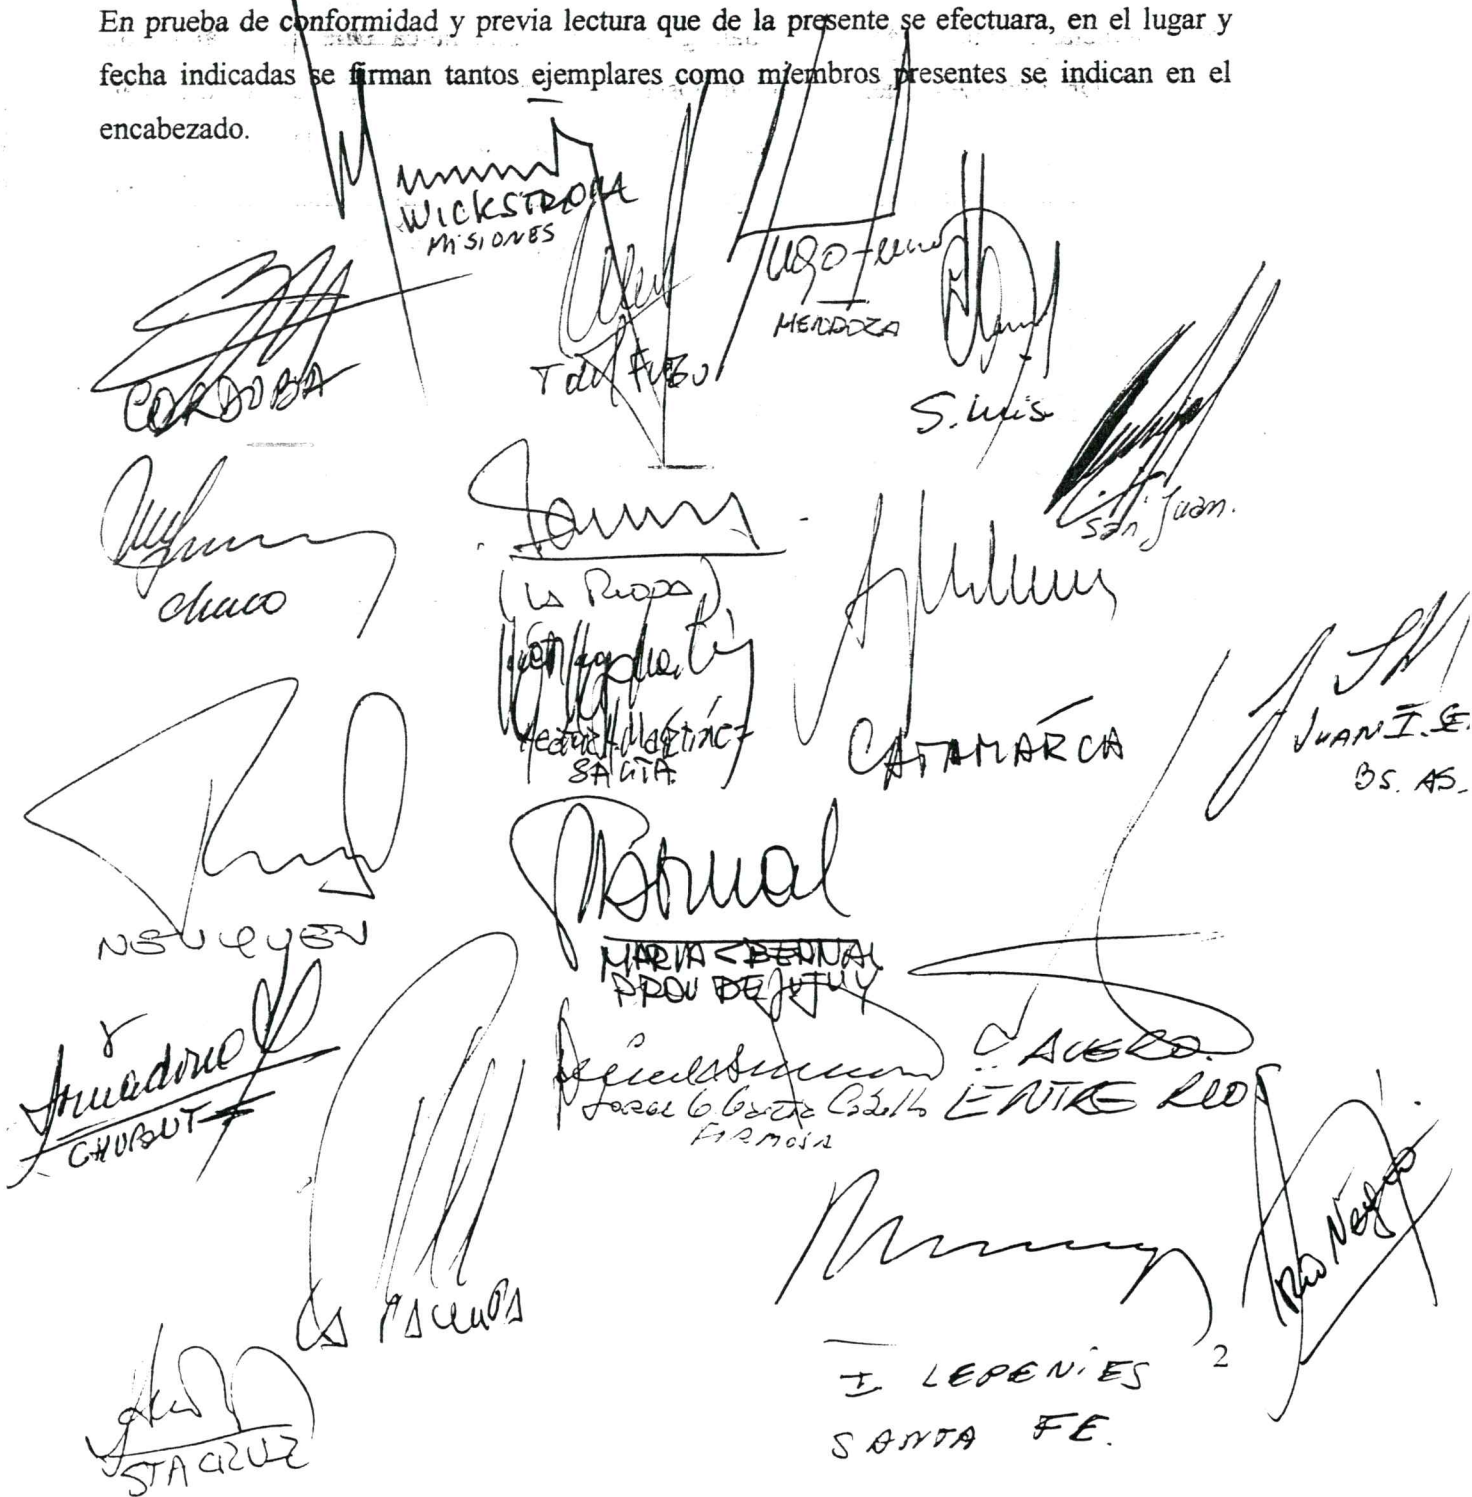 En prueba de conformidad y previa lectura que de la presente se efectuara, en el lugar y
fecha indicadas se firman tantos ejemplares como miembros presentes se indican en el
encabezado.
WICKSTROM
MISIONES
MENDOZA
CORDOBA
S. Luis
San Juan.
Chaco
(La Rioja)
Martínez
SALTA
CATAMARCA
JUAN I. SE
BS. AS.
NEUQUEN
MARIA C BERNAL
PROV DE JUJUY
CHUBUT
ACERO
ENTRE RIOS
FORMOSA
Río Negro
LA PAMPA
2
I LEPENIES
SANTA FE.
STA CRUZ